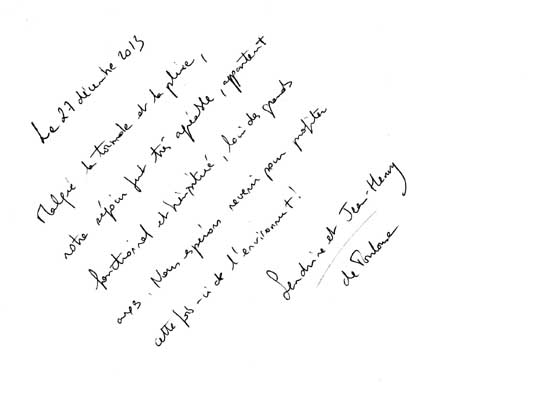 Le 27 décembre 2013
Malgré la tornade et la pluie,
notre séjour fut très agréable, appartement
fonctionnel et bien situé, loin des grands
axes. Nous espérons revenir pour profiter
cette fois-ci de l'environnement!
Sandrine et Jean-Henry
de Toulouse